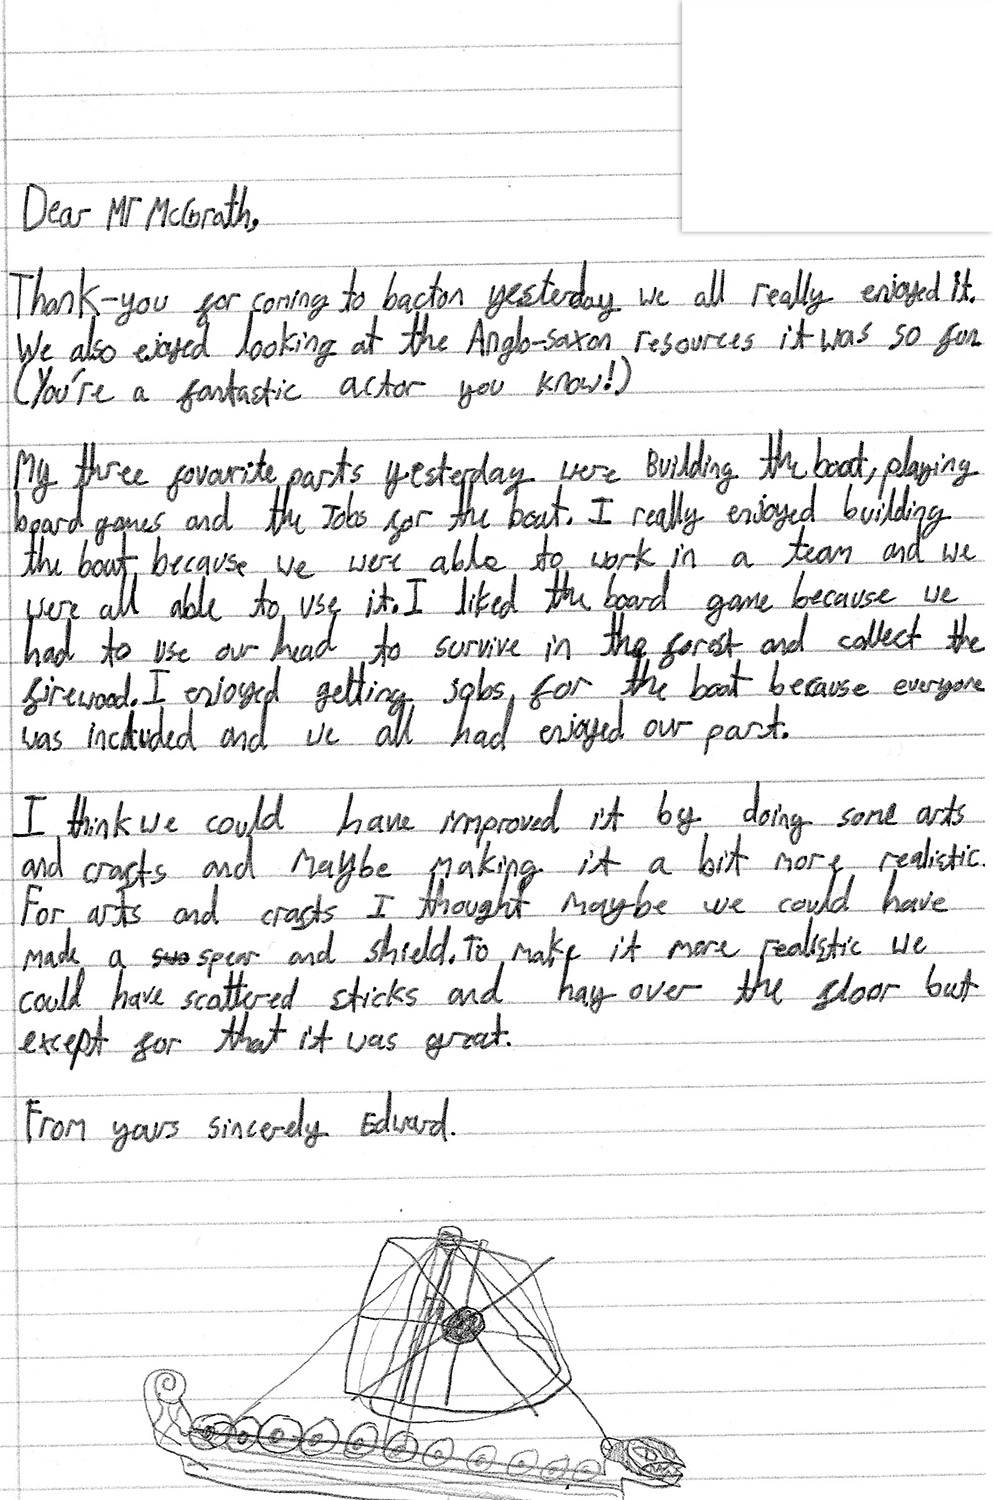 Dear Mr McGrath,
Thank-you for coming to bacton yesterday we all really enjoyed it.
We also ejoyed looking at the Anglo-saxon resources it was so fun
(You're a fantastic actor you know!)
My three favourite parts yesterday were Building the boat, playing
board games and the Jobs for the boat. I really enjoyed building
the boat because we were able to work in a team and we
were all able to use it. I liked the board game because we
had to use our head to survive in the forest and collect the
firewood. I enjoyed getting jobs for the boat because everyone
was included and we all had enjoyed our part.
I think we could have improved it by doing some arts
and crafts and Maybe Making it a bit more realistic.
For arts and crafts I thought Maybe we could have
made a spear and shield. To make it more realistic we
could have scattered sticks and hay over the floor but
except for that it was great.
From yours sincerely Edward.